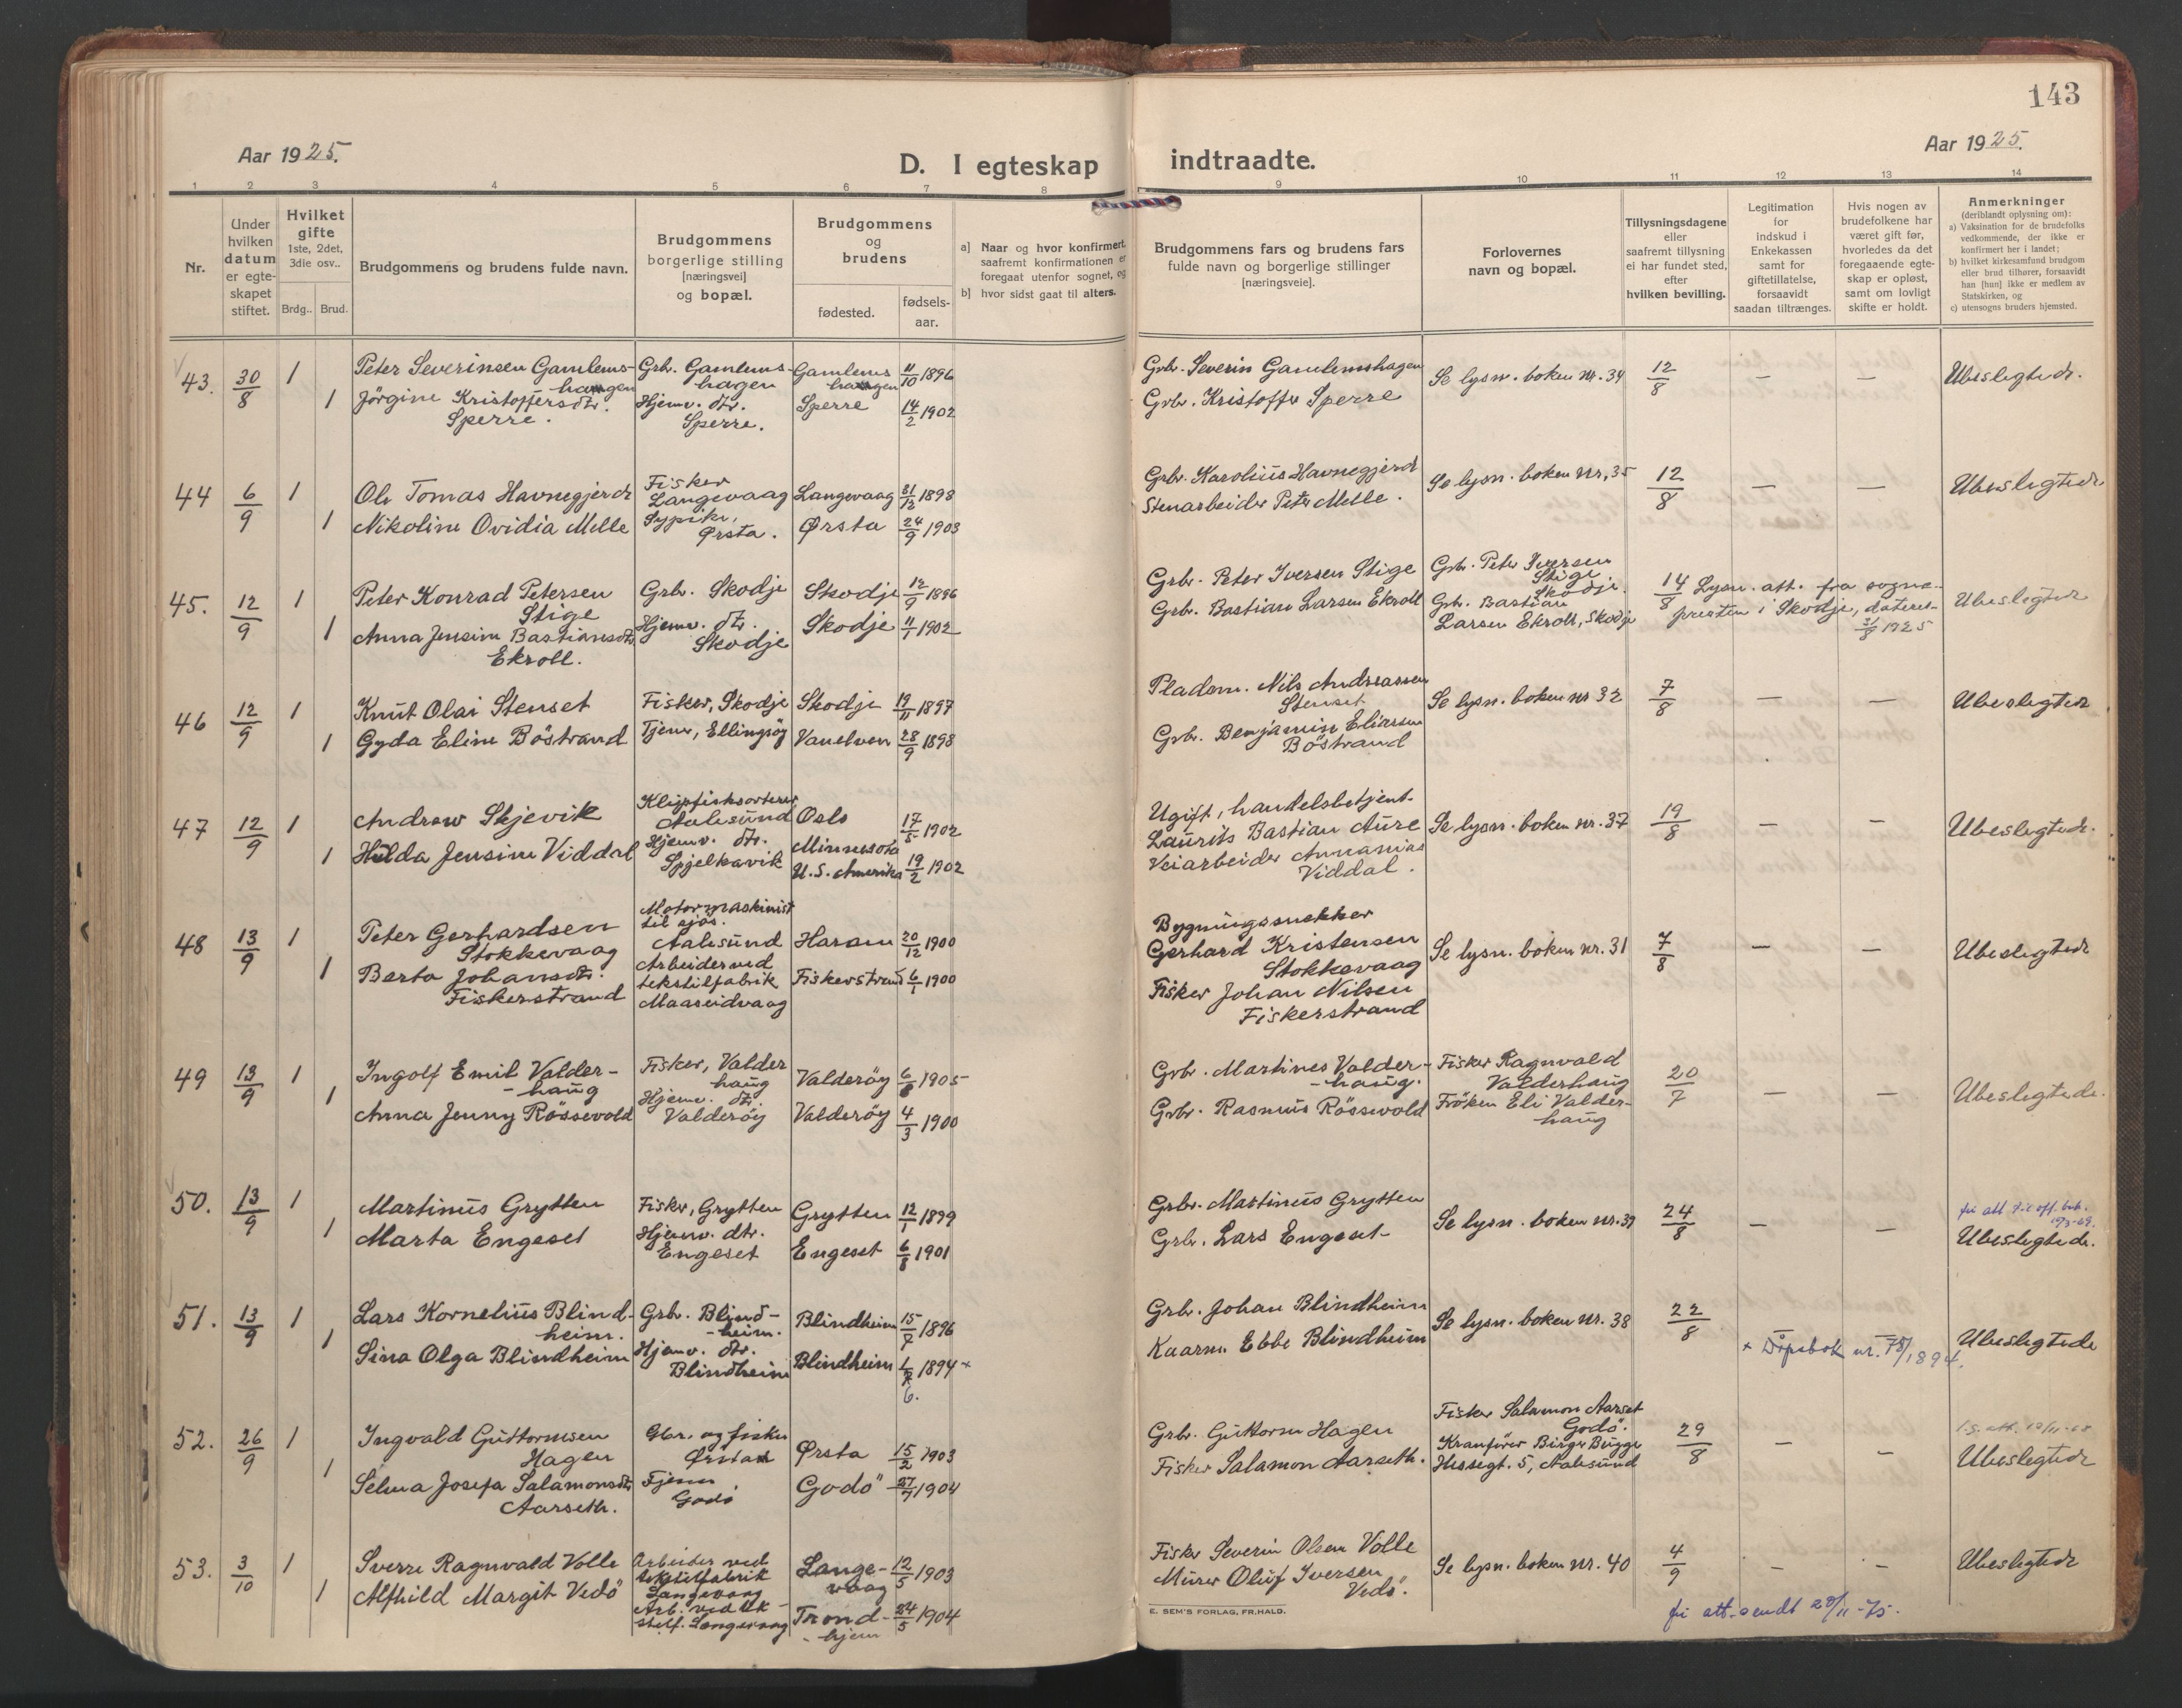 143
Aar 1925.
D. I egteskap indtraadte.
Aar 1925.
1 2 3 4 5 6 7 8 9 10 11 12 13 14
Nr.
Under
hvilken
datum
er egte-
skapet
stiftet.
Hvilket
gifte
1ste, 2det,
3die osv..
Brdg.. Brud.
Brudgommens og brudens fulde navn.
Brudgommens
borgerlige stilling
[næringsvei]
og bopæl.
Brudgommens
og
brudens
fødested.
fødsels-
aar.
a] Naar og hvor konfirmert,
saafremt konfirmationen er
foregaat utenfor sognet, og
b] hvor sidst gaat til alters.
Brudgommens fars og brudens fars
fulde navn og borgerlige stillinger
[næringsveie].
Forlovernes
navn og bopæl.
Tillysningsdagene
eller
saafremt tillysning
ei har fundet sted,
efter
hvilken bevilling.
Legitimation
for
indskud i
Enkekassen
samt for
giftetillatelse,
forsaavidt
saadan tiltrænges.
Hvis nogen av
brudefolkene har
været gift før,
hvorledes da det
foregaaende egte-
skap er opløst,
samt om lovligt
skifte er holdt.
Anmerkninger
(deriblandt oplysning om):
a) Vaksination for de brudefolks
vedkommende, der ikke er
konfirmert her i landet;
b) hvilket kirkesamfund brudgom
eller brud tilhører, forsaavidt
han [hun] ikke er medlem av
Statskirken, og
c) utensogns bruders hjemsted.
43. 30/8 1 Peter Severinsen Gamlems-
hagen
1 Jörgine Kristoffersdtr.
Sperre.
Grb. Gamlems-
hagen
Hjemv. dtr.
Sperre.
Gamlems
hagen
Sperre
11/10 1896
14/2 1902
Grbr. Severin Gamlemshagen
Grbr. Kristoffer Sperre
Se lysn. boken nr. 34
12/8 — — Ubeslegtede.
44 6/9 1 Ole Tomas Havnegjerde
1 Nikoline Ovidia Melle
Fisker
Langevaag
Sypike,
Ørsta.
Langevaag
Ørsta
31/12 1898
24/9 1903
Grbr. Karolius Havnegjerd
Stenarbeider Peter Melle.
Se lysn. boken nr. 35
12/8 — — Ubeslegtede
45. 12/9 1 Peter Konrad Petersen
Stige
1 Anna Jensine Bastiansdtr.
Ekroll.
Grb. Skodje
Hjemv. dtr.
Skodje
Skodje
Skodje
12/9 1896
11/1 1902
Grbr. Peter Iversen Stige
Grb. Bastian Larsen Ekroll
Grb. Peter Iversen
Stige
Skodje.
Grb. Bastian
Larsen Ekroll, Skodje
14/8 Lysn. att. fra sogne-
presten i Skodje, dateret
31/8 1925
Ubeslegtede
46 12/9 1 Knut Olai Stenset
1 Gyda Eline Böstrand
Fisker, Skodje
Tjener, Ellingsöy
Skodje
Vanelven
19/11 1897
28/9 1898
Pladsm. Nils Andreassen
Stenset
Grb. Benjamin Eliassen
Böstrand
Se lysn. boken nr 32
7/8 — — Ubeslegtede
47 12/9 1 Andrew Skjevik
1 Hilda Jensine Viddal
Klipfisksorterer
Aalesund
Hjemv. dtr.
Spjelkavik
Oslo
Minnesota
U.S. Amerika
17/5 1902
19/2 1902
Ugift, handelsbetjent
Laurits Bastian Aure
Veiarbeider Annanias
Viddal.
Se lysn. boken nr. 37
19/8 — — Ubeslegtede.
48 13/9 1 Peter Gerhardsen
Stokkevaag
1 Berta Johansdtr.
Fiskerstrand
Motormaskinist
til sjös.
Aalesund
Arbeider ved
tekstilfabrik
Maaseidvaag
Haram
Fiskerstrand
20/12 1900
6/1 1900
Bygningssnekker
Gerhard Kristensen
Stokkevaag
Fisker Johan Nilsen
Fiskerstrand
Se lysn. boken nr. 31
7/8 — — Ubeslegtede
49 13/9 1 Ingolf Emil Valder-
-haug
1 Anna Jenny Rössevold
Fisker, Valder
haug
Hjemv. dtr.
Valderöy
Valderöy
Valderöy
6/8 1905
4/3 1900
Grbr. Martines Valder-
-haug.
Grbr. Rasmus Rössevold
Fisker Ragnvald
Valderhaug
Fröken Eli Valder-
haug
20/7 — — Ubeslegtede.
50. 13/9 1 Martinus Grytten
1 Marta Engeset
Fisker, Grytten
Hjemv. dtr.
Engeset
Grytten
Engeset
12/1 1899
6/8 1901
Grbr. Martinus Grytten
Grbr. Lars Engeset
Se lysn. boken nr. 39
24/8 — — fri att. til off. bruk.
Ubeslegtede.
51. 13/9 1 Lars Kornelius Blind-
heim.
1 Sina Olga Blindheim
Grb. Blind-
-heim.
Hjemv. dtr.
Blindheim
Blindheim
Blindheim
15/7 1896
1894 ×
6.
Grb. Johan Blindheim
Kaarm. Ebbe Blindheim
Se lysn. boken nr. 38
22/8 — —
× Döpsbok nr. 78/1894.
Ubeslegtede
52. 26/9 1 Ingvald Guttormsen
Hagen
1 Selma Josefa Salamonsdtr
Aarseth.
Gbr. og fisker
Ørsta
Tjener
Godö
Ørsta
Godö
15/2 1903
27/7 1904
Grbr. Guttorm Hagen
Fisker Salamon Aarseth.
Fisker Salamon Aarset
Godö.
Kranförer Birger Brügge
Hessegt. 5, Aalesund
29/8 — — Ubeslegtede
53. 3/10 1 Sverre Ragnvald Volle
1 Alfhild Margit Vedö
Arbeider ved
tekstilfabrik
Langevaag
Arb. ved tek-
stilf. Langevaag
Lange-
vaag
Trond-
-hjem
12/5 1903
24/5 1904
Fisker Severin Olsen Volle
Murer Oluf Iversen
Vedö.
Se lysn. boken nr. 40
4/9 — — Ubeslegtede
fri att. sendt 28/11-75.
E. SEM'S FORLAG, FR.HALD.